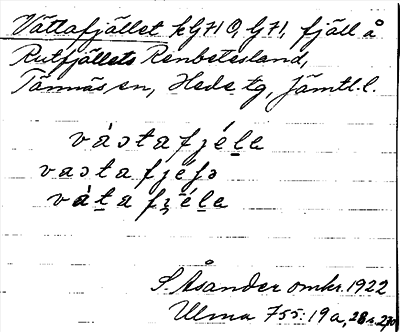 Vättafjället kG71 O, G71, fjäll å
Rutfjällets Renbetesland,
Tännäs sn, Hede tg, Jämtl. l.
vástafjéle
vastafjefə
vátafʒéle
S. Åsander omkr. 1922
Ulma 755: 19a,